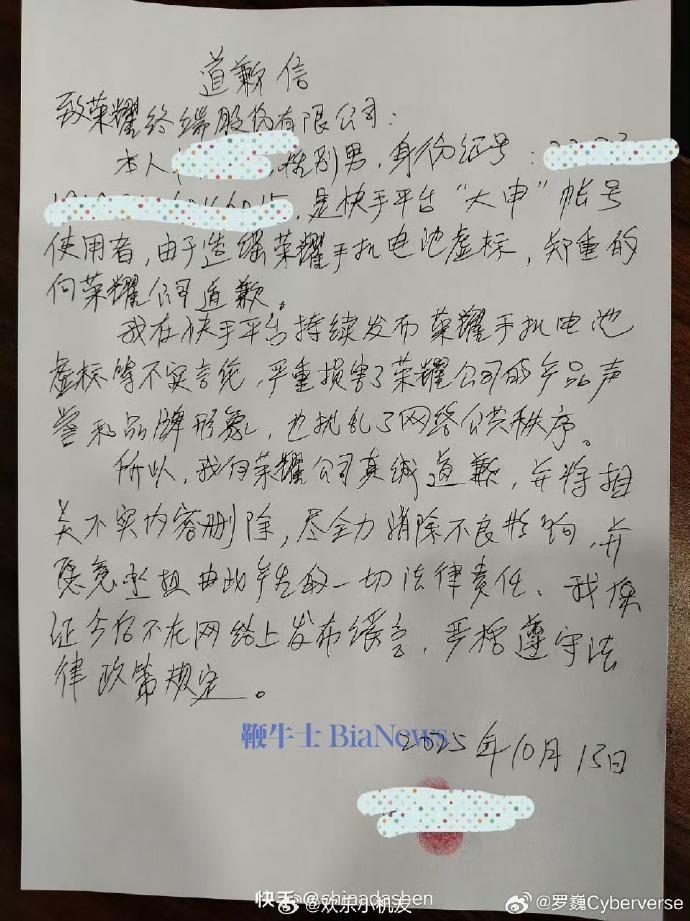 道歉信
致荣耀终端股份有限公司：
本人 ，性别男，身份证号：
，是快手平台“大申”帐号
使用者，由于造谣荣耀手机电池虚标，郑重的
向荣耀公司道歉。
我在快手平台持续发布荣耀手机电池
虚标等不实言论，严重损害了荣耀公司的产品声
誉和品牌形象，也扰乱了网络公共秩序。
所以，我向荣耀公司真诚道歉，并将相
关不实内容删除，尽全力消除不良影响，并
愿意承担由此产生的一切法律责任、我保
证今后不在网络上发布谣言，严格遵守法
律政策规定。
鞭牛士 BiaNews
2025年10月13日
快手 @chinadashen
@欢乐小机友
@罗巍Cyberverse